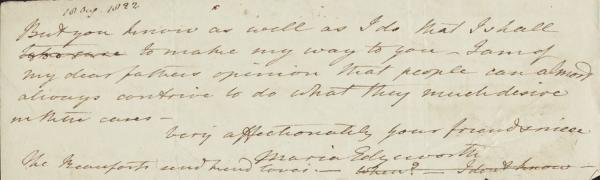 18 Aug. 1822
But you know as well as I do that I shall
take care to make my way to you - I am of
my dear fathers opinion that people can almost
always contrive to do what they much desire
in their cases -
very affectionately your friend & niece
Maria Edgeworth
The Beauforts send kind loves. - when? - I don't know -